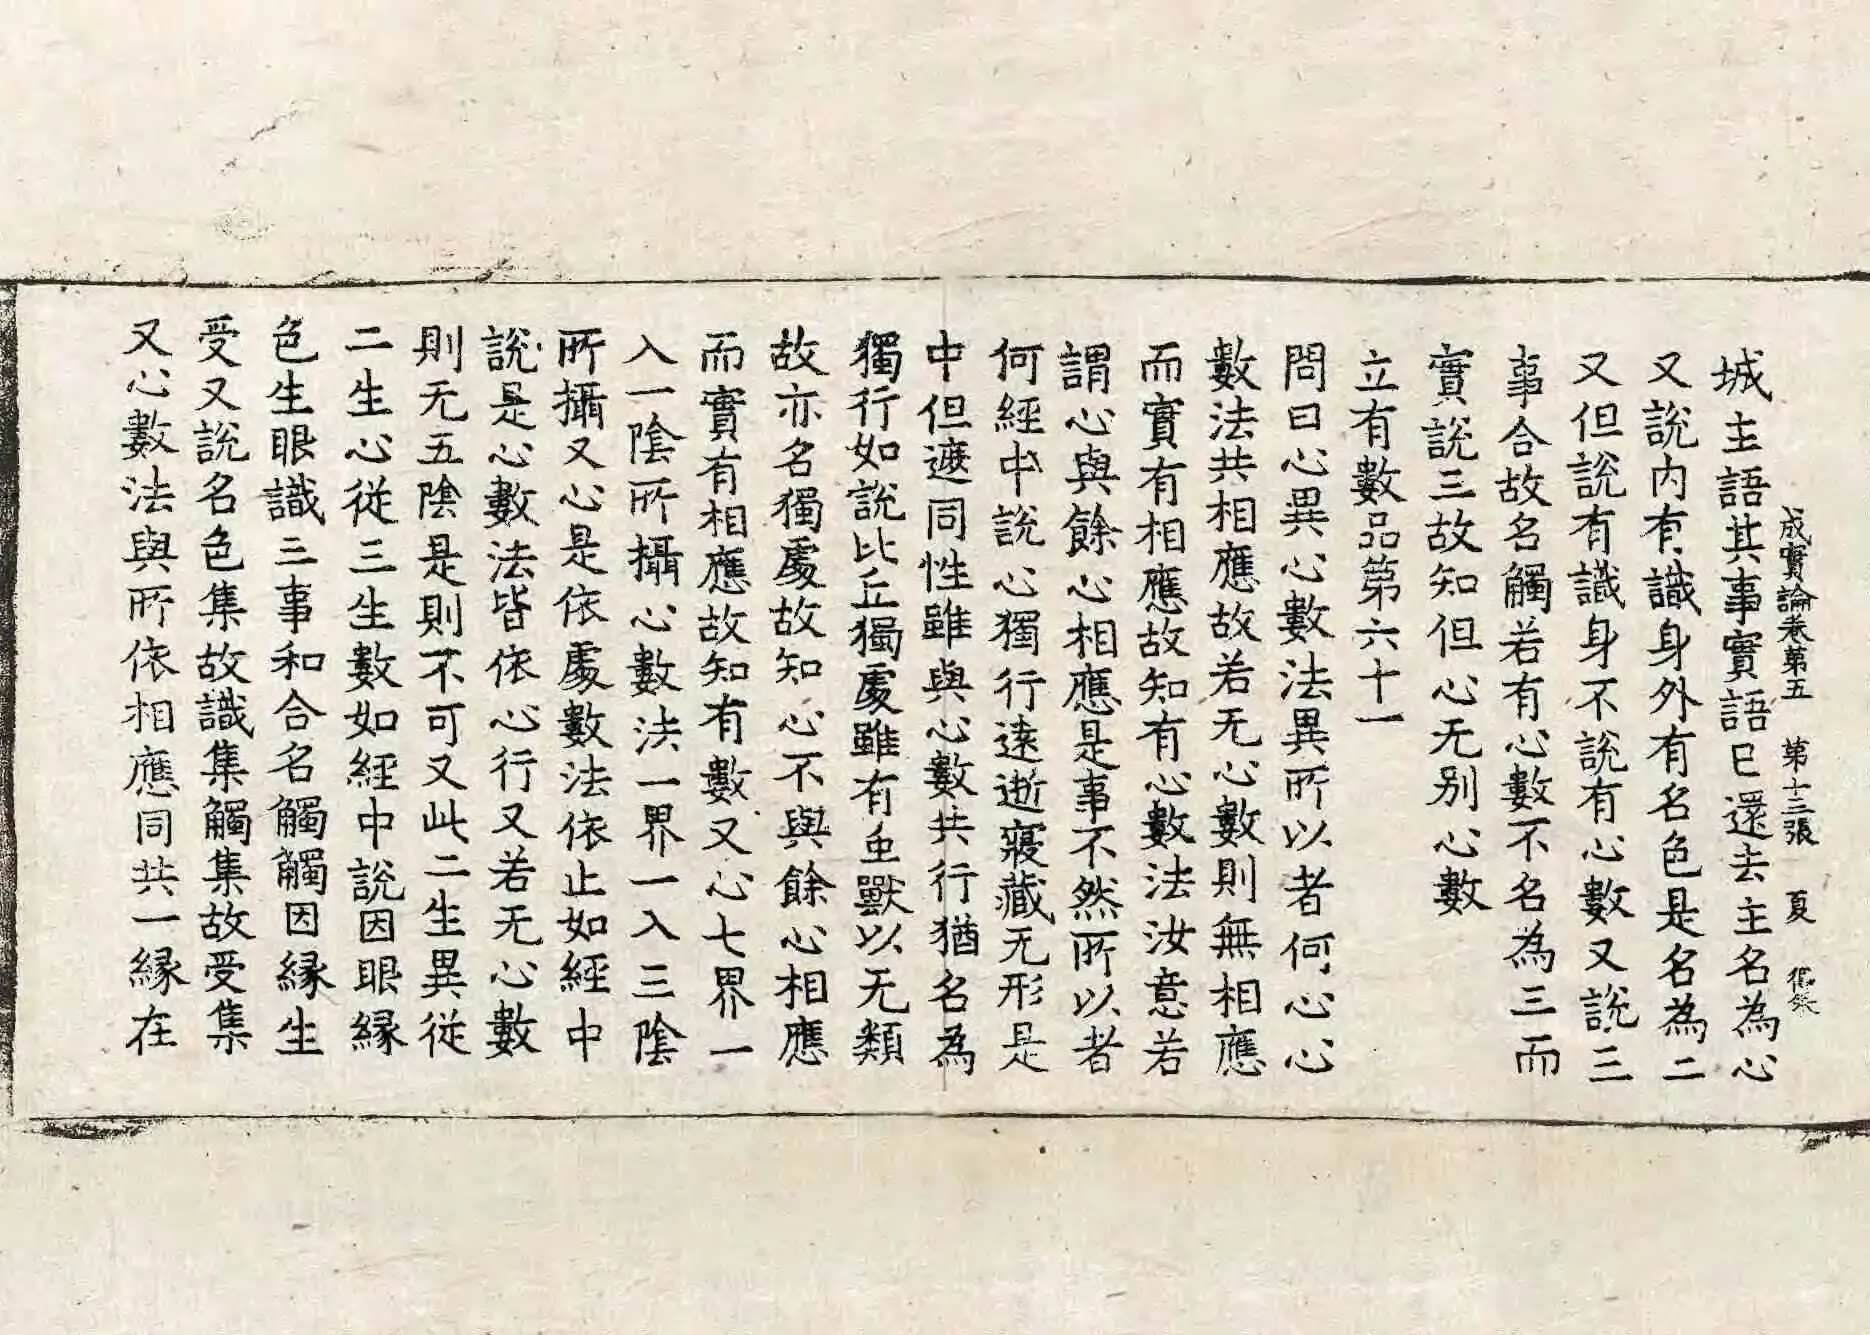 成實論卷第五 第十三張 夏
城主語其事實語已還去主名為心
又說内有識身外有名色是名為二
又但說有識身不說有心數又說三
事合故名觸若有心數不名為三而
實說三故知但心无别心數
立有數品第六十一
問曰心異心數法異所以者何心心
數法共相應故若无心數則無相應
而實有相應故知有心數法汝意若
謂心與餘心相應是事不然所以者
何經中說心獨行遠逝寢藏无形是
中但遮同性雖與心數共行猶名為
獨行如說比丘獨處雖有虫獸以无類
故亦名獨處故知心不與餘心相應
而實有相應故知有數又心七界一
入一陰所攝心數法一界一入三陰
所攝又心是依處數法依止如經中
說是心數法皆依心行又若无心數
則无五陰是則不可又此二生異從
二生心從三生數如經中說因眼緣
色生眼識三事和合名觸觸因緣生
受又說名色集故識集觸集故受集
又心數法與所依相應同共一緣在